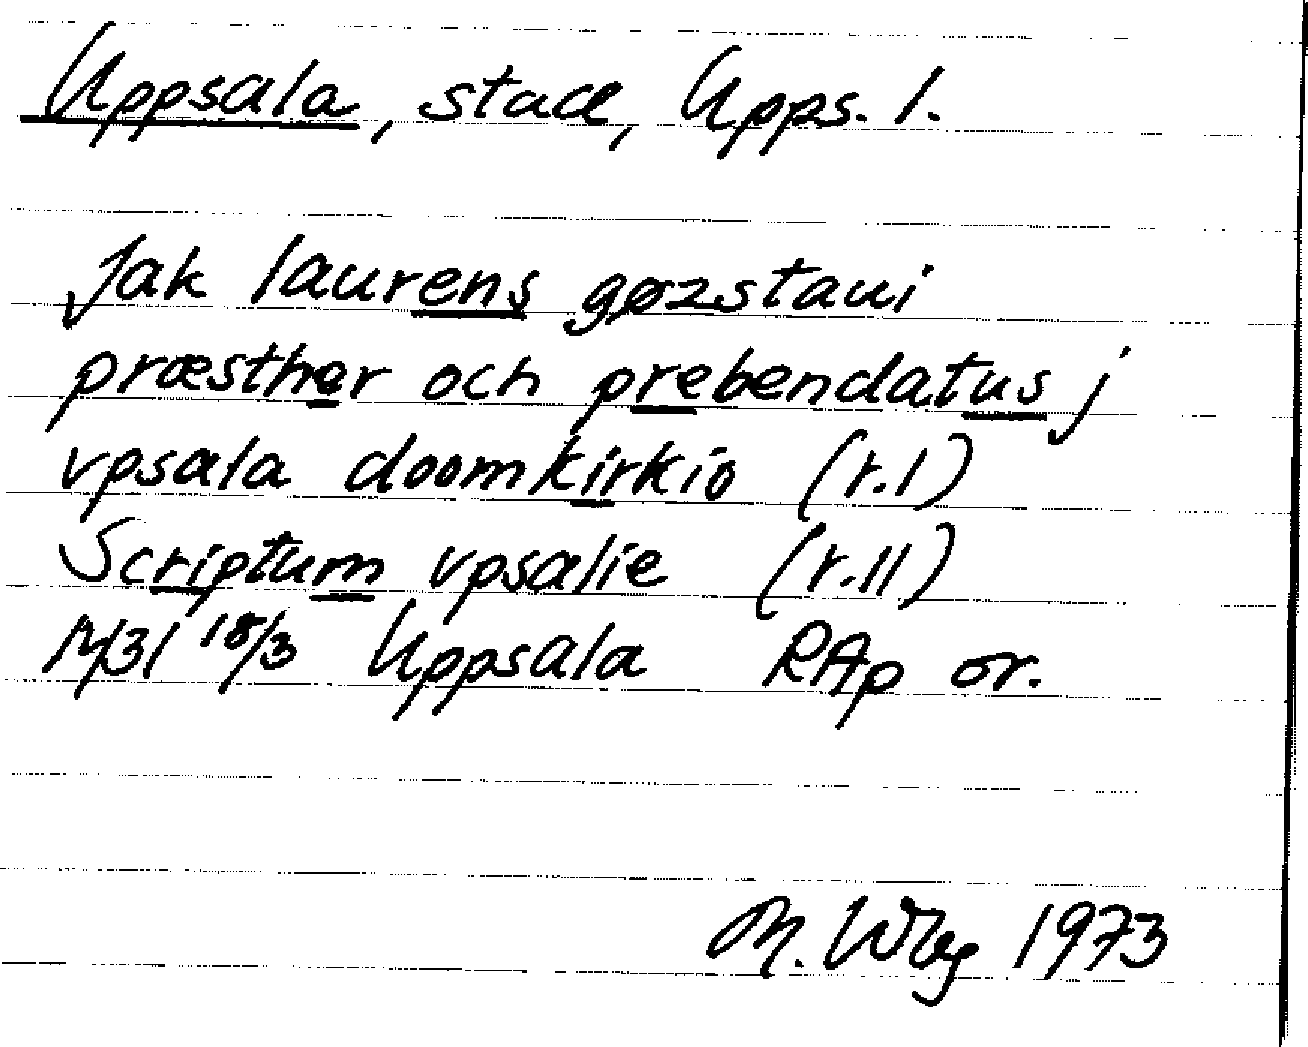 Uppsala, stad, Upps. l.
Jak laurens gøzstaui
præsther och prebendatus j
vpsala doomkirkio (r.1)
Scriptum vpsalie (r.11)
1431 18/3 Uppsala RAp or.
M. Wbg 1973